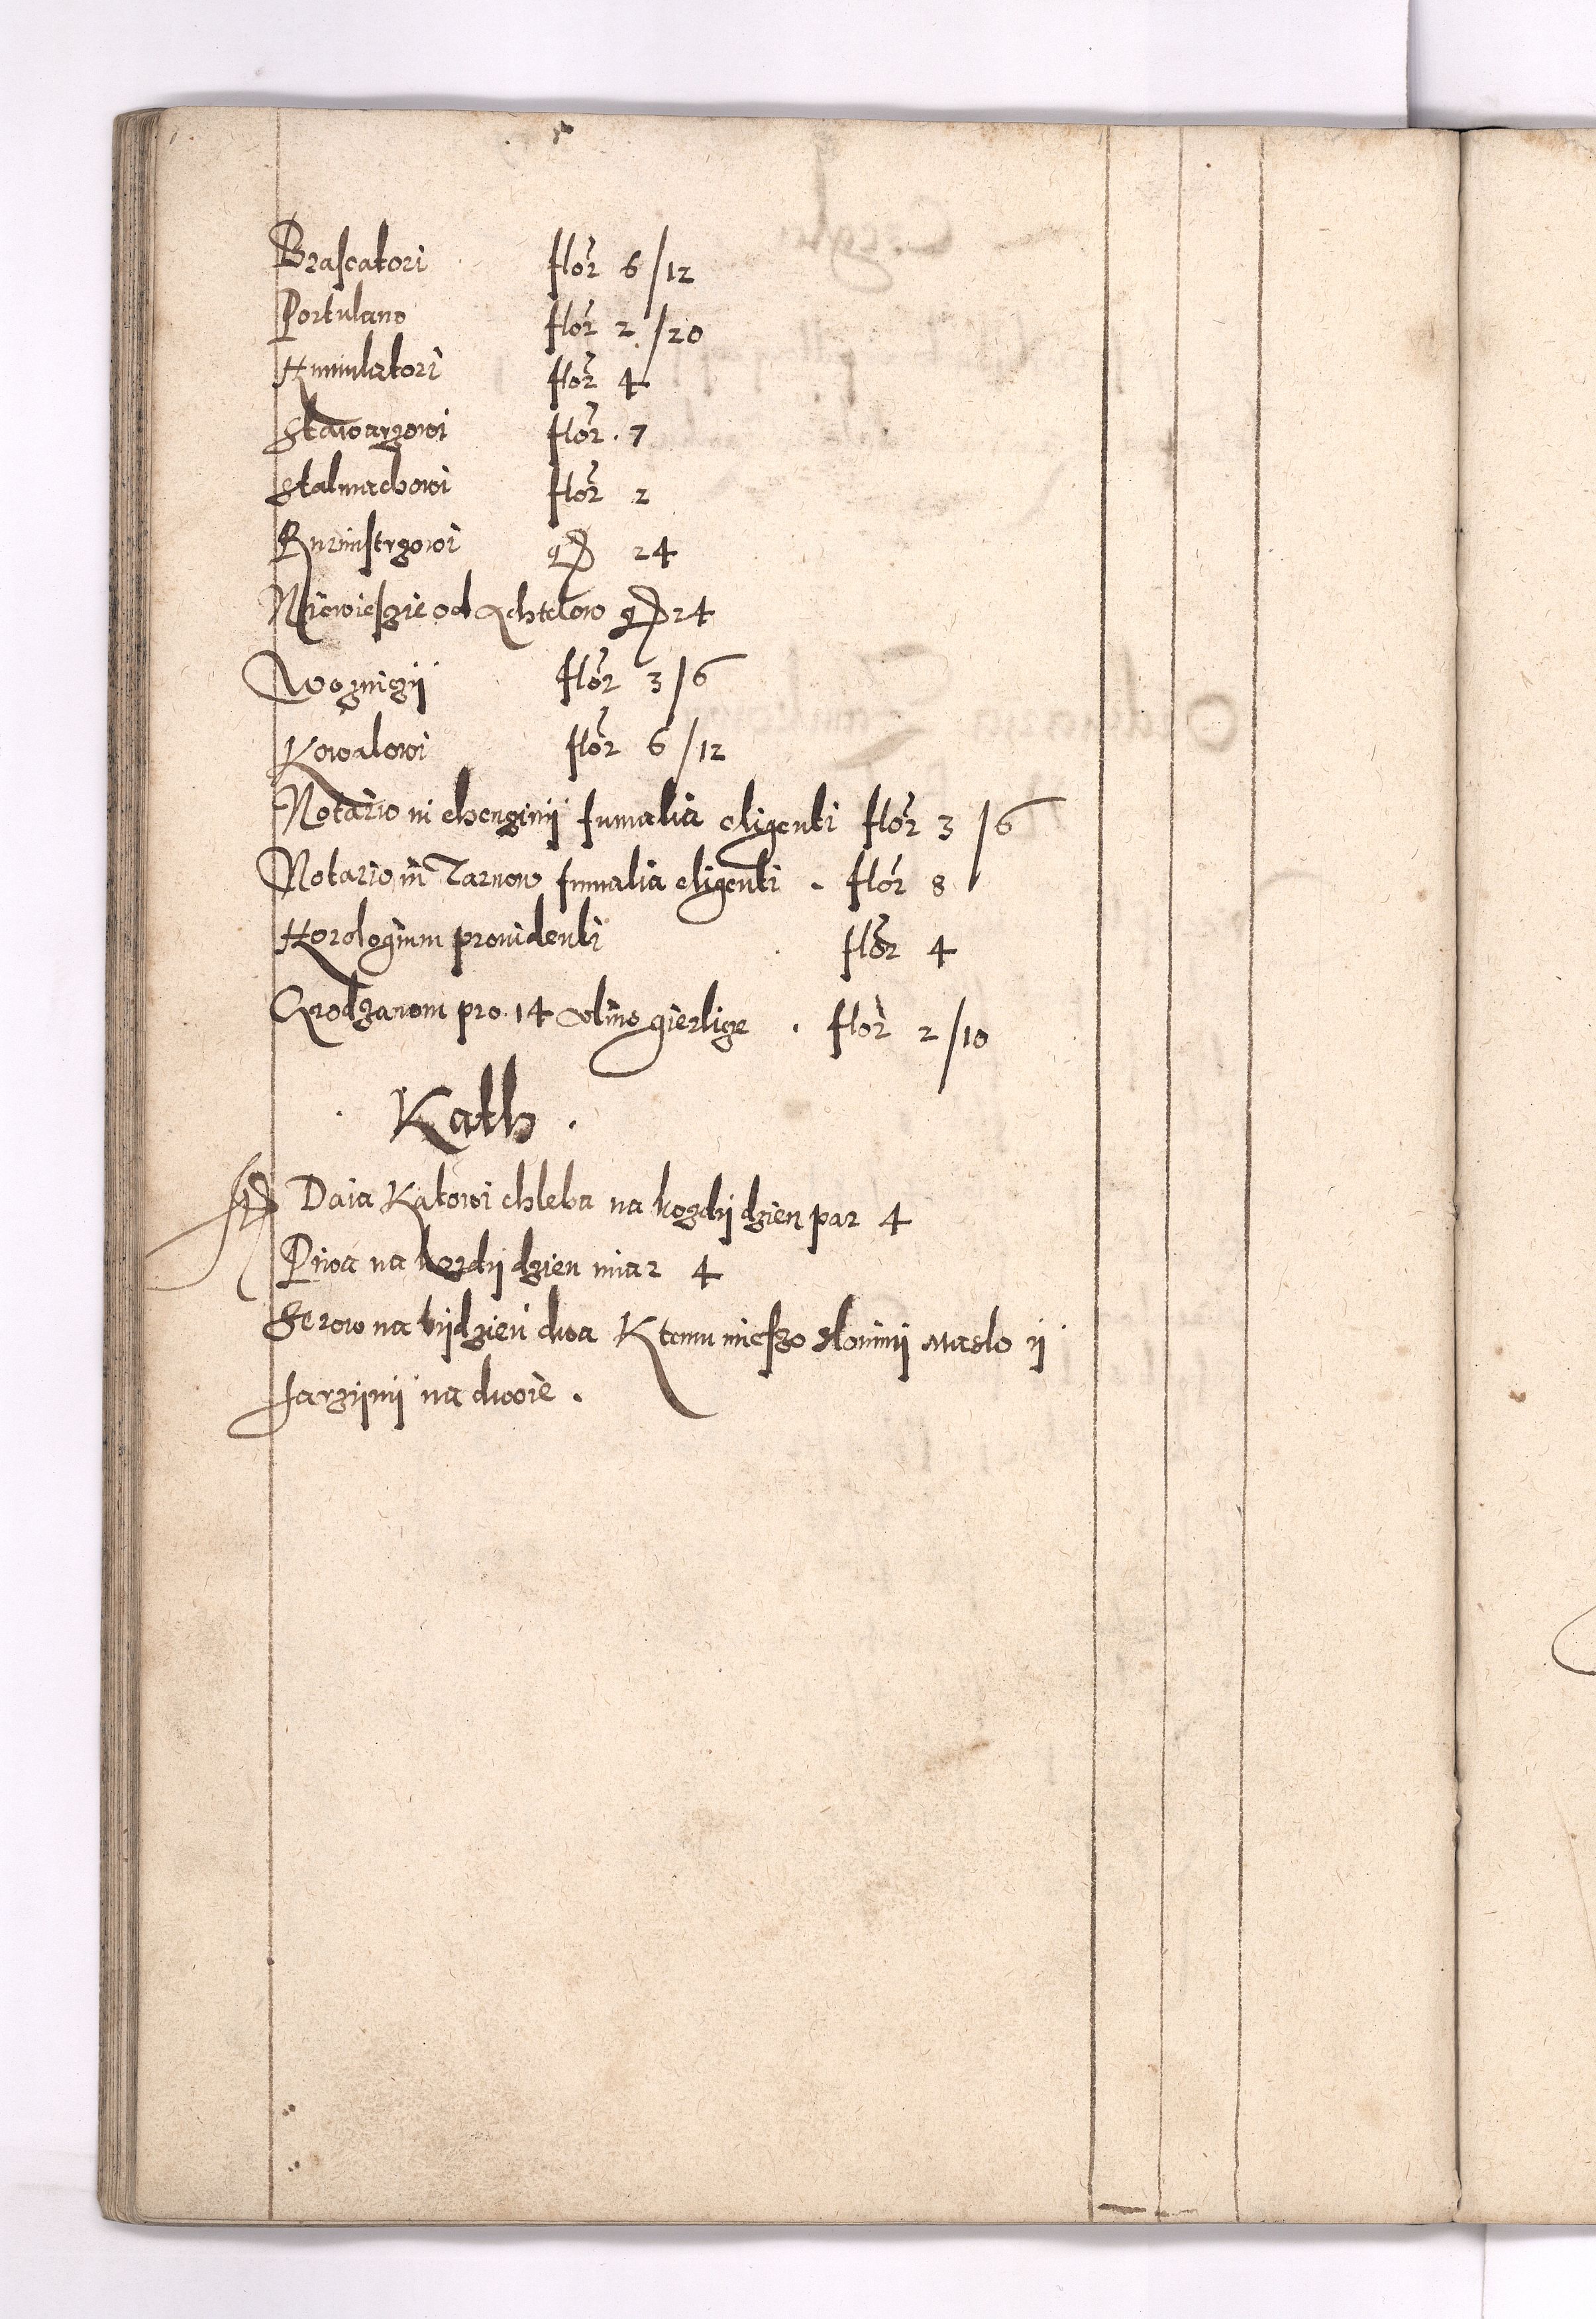 Brascatori flor 6/12
Portulano flor 2/20
Humulatori flor 4
Stawarzowi flor 7
Stalmachowi flor 2
Rurmistrzowi 24
Niewieszie od Achtelow 24
Wozniczÿ flor 3/6
Kowalowi flor 6/12
Notario in chenginÿ fumalia eligenti flor 3/6
Notario in Tarnow fumalia eligenti . flor 8
Horologium prouidenti flor 4
Grodzanom pro 14 gierlige . flor 2/10
Kath .
Daia Katowi chleba na kozdÿ dzien par 4
Piwa na kozdÿ dzien miar 4
Serow na tÿdzien dwa K temu mieszo slominÿ Maslo ÿ
Jarzÿnÿ na dwoie .